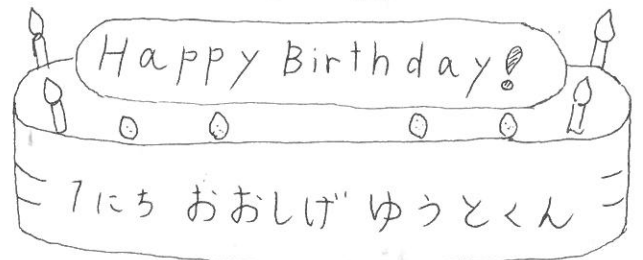 Happy Birthday!
1にち おおしげ ゆうとくん